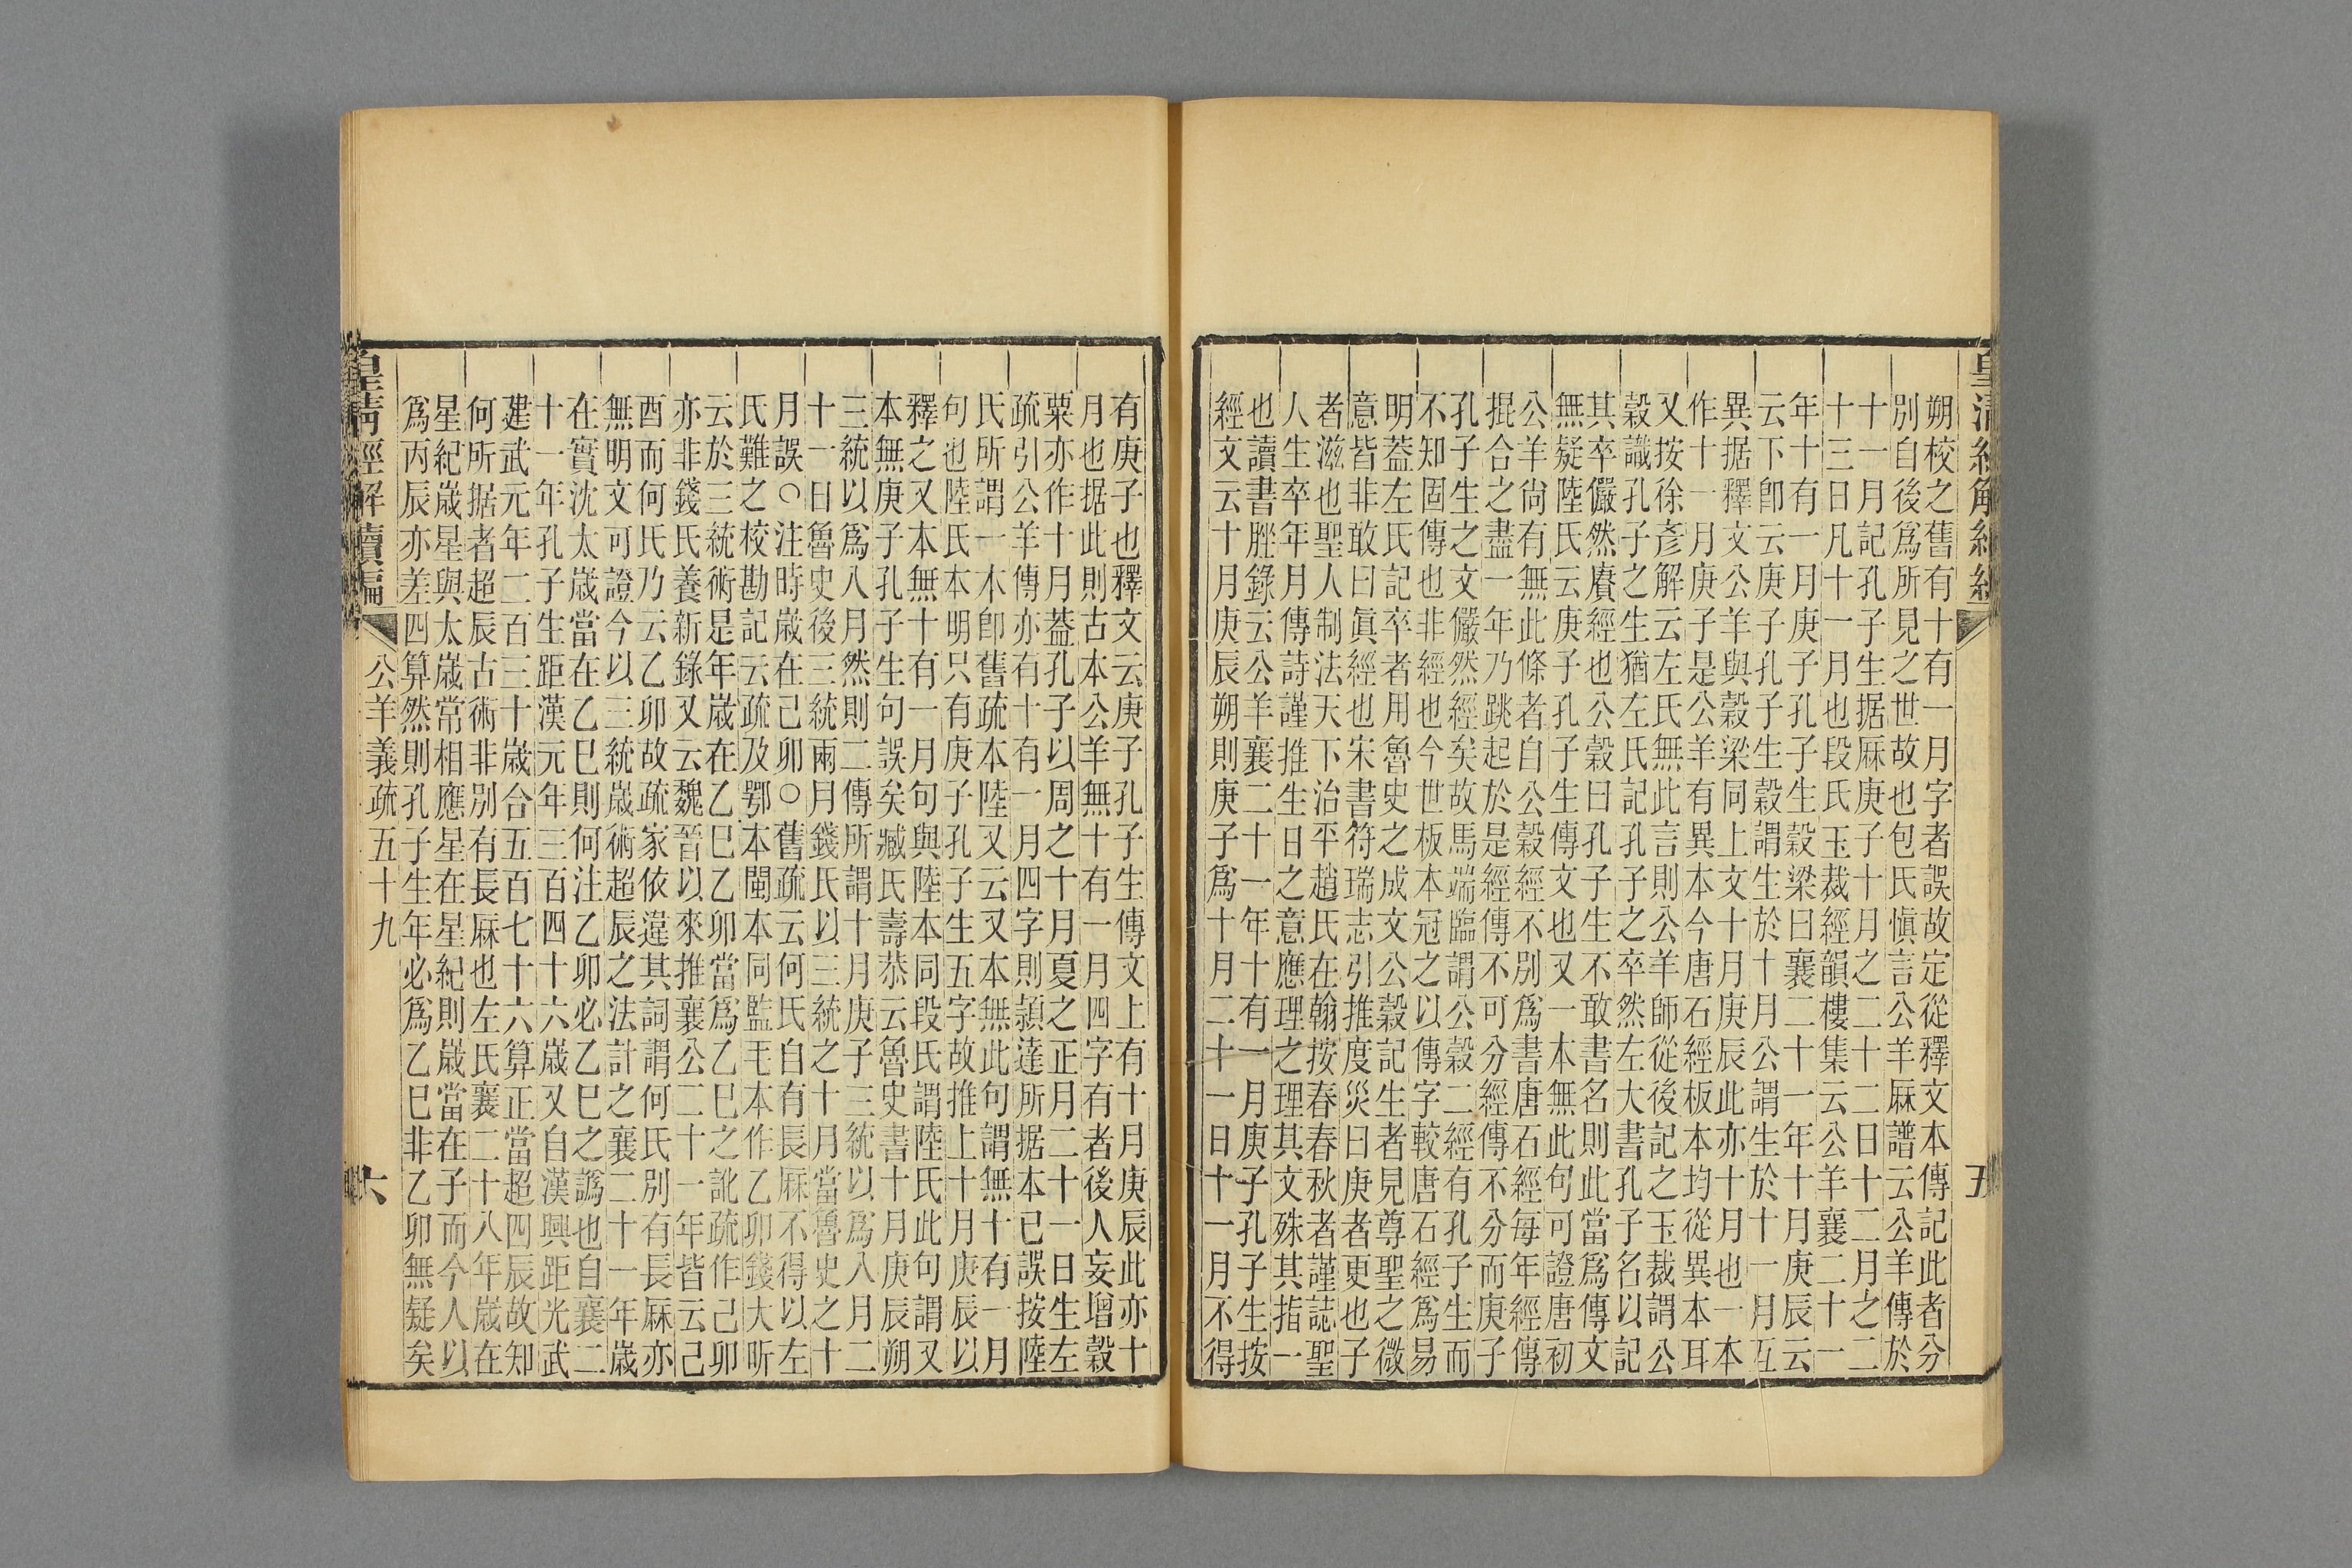 皇清經解續編
五
朔校之舊有十有一月字者誤故定從釋文本傳記此者分
別自後爲所見之世故也包氏愼言公羊厤譜云公羊傳於
十一月記孔子生据厤庚子十月之二十二日十二月之二
十三日凡十一月也段氏玉裁經韻樓集云公羊襄二十一
年十有一月庚子孔子生穀梁曰襄二十一年十月庚辰云
云下卽云庚子孔子生穀謂生於十月公謂生於十一月互
異据釋文公羊與穀梁同上文十月庚辰此亦十月也一本
作十一月庚子是公羊有異本今唐石經板本均從異本耳
又按徐彥解云左氏無此言則公羊師從後記之玉裁謂公
穀識孔子之生猶左氏記孔子之卒然左大書孔子名以記
其卒儼然賡經也公穀曰孔子生不敢書名則此當爲傳文
無疑陸氏云庚子孔子生傳文也又一本無此句可證唐初
公羊尙有無此條者自公穀經不別爲書唐石經每年經傳
掍合之盡一年乃跳起於是經傳不可分經傳不分而庚子
孔子生之文儼然經矣故馬端臨謂公穀二經有孔子生而
不知固傳也非經也今世板本冠之以傳字較唐石經爲易
明葢左氏記卒者用魯史之成文公穀記生者見尊聖之微
意皆非敢曰眞經也宋書符瑞志引推度災曰庚者更也子
者滋也聖人制法天下治平趙氏在翰按春春秋者謹誌聖
人生卒年月傳詩謹推生日之意應理之理其文殊其指一
也讀書脞錄云公羊襄二十一年十有一月庚子孔子生按
經文云十月庚辰朔則庚子爲十月二十一日十一月不得
有庚子也釋文云庚子孔子生傳文上有十月庚辰此亦十
月也据此則古本公羊無十有一月四字有者後人妄增穀
粟亦作十月葢孔子以周之十月夏之正月二十一日生左
疏引公羊傳亦有十有一月四字則頴達所据本已誤按陸
氏所謂一本卽舊疏本陸又云又本無此句謂無十有一月
句也陸氏本明只有庚子孔子生五字故推上十月庚辰以
釋之又本無十有一月句與陸本同段氏謂陸氏此句謂又
本無庚子孔子生句誤矣臧氏壽恭云魯史書十月庚辰朔
三統以爲八月然則二傳所謂十月庚子三統以爲八月二
十一日魯史後三統兩月錢氏以三統之十月當魯史之十
月誤○注時歲在己卯○舊疏云何氏自有長厤不得以左
氏難之校勘記云疏及鄂本閩本同監毛本作乙卯錢大昕
云於三統術是年歲在乙巳乙卯當爲乙巳之訛疏作己卯
亦非錢氏養新錄又云魏晉以來推襄公二十一年皆云己
酉而何氏乃云乙卯故疏家依違其詞謂何氏別有長厤亦
無明文可證今以三統歲術超辰之法計之襄二十一年歲
在實沈太歲當在乙巳則何注乙卯必乙巳之譌也自襄二
十一年孔子生距漢元年三百四十六歲又自漢興距光武
建武元年二百三十歲合五百七十六算正當超四辰故知
何所据者超辰古術非別有長厤也左氏襄二十八年歲在
星紀歲星與太歲常相應星在星紀則歲當在子而今人以
爲丙辰亦差四算然則孔子生年必爲乙巳非乙卯無疑矣
皇清經解續編
公羊義疏五十九
六